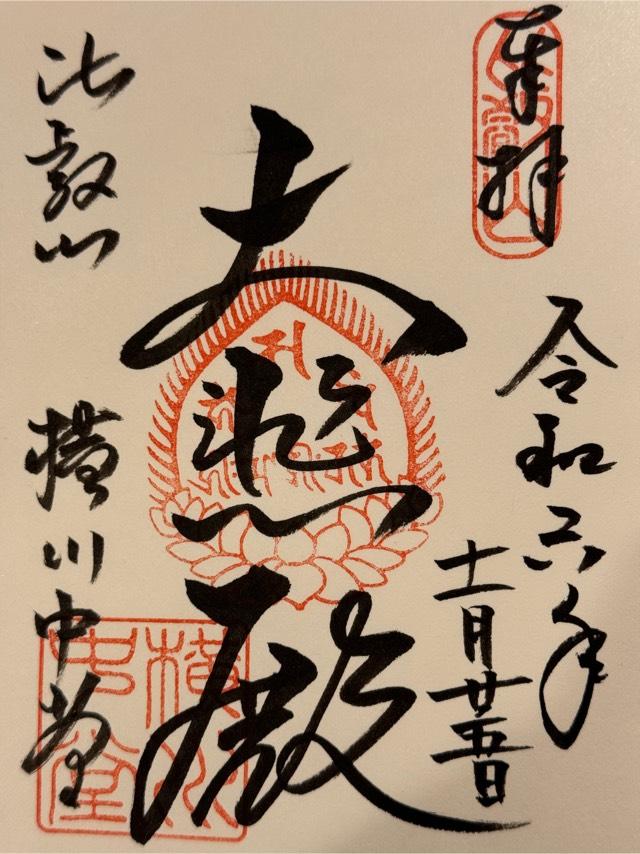 奉拝
令和六年
十一月廿五日
大悲殿
比叡山
横川中堂
横川
中堂